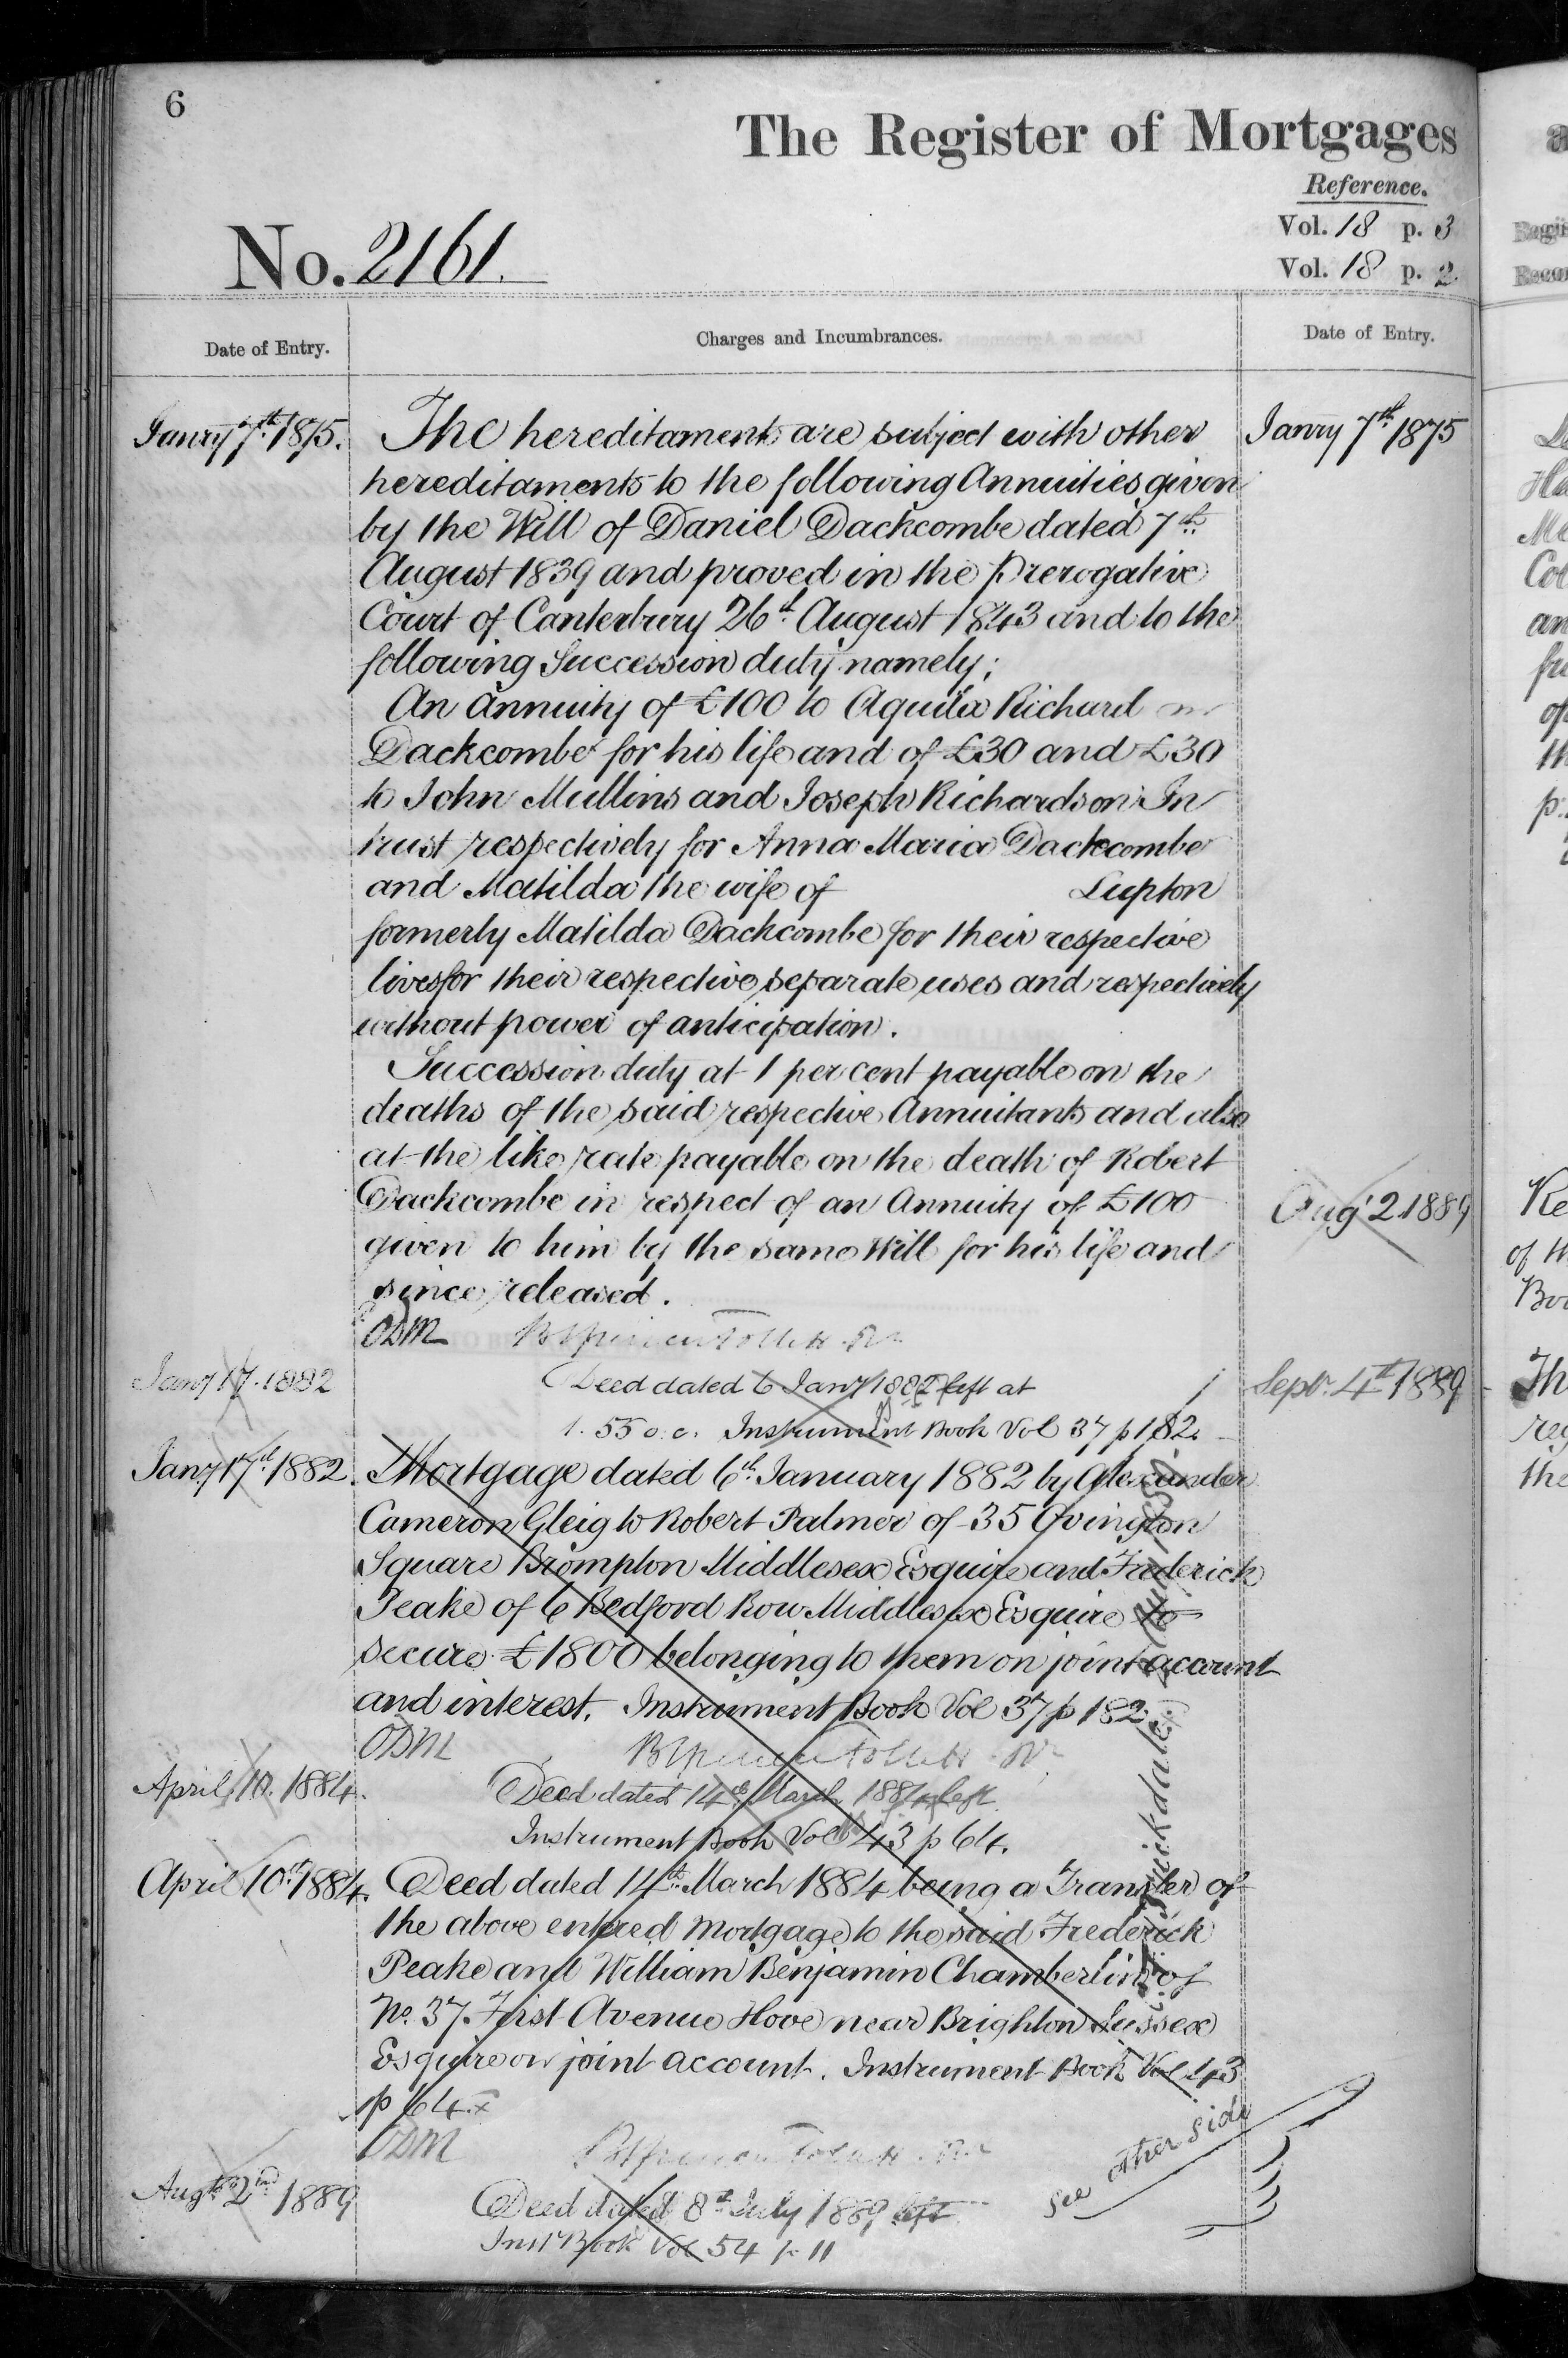 6
The Register of Mortgages
Reference.
Vol. 18 p. 3
No. 2161.
Vol. 18 p. 2
Date of Entry.
Charges and Incumbrances.
Date of Entry.
Janry 7th 1875.
The hereditaments are subject with other
Janry 7th 1875
hereditaments to the following Annuities given
by the Will of Daniel Dackcombe dated 7th
August 1839 and proved in the Prerogative
Court of Canterbury 26th August 1843 and to the
following Succession duty namely;
An Annuity of £100 to Aquila Richard
Dackcombe for his life and of £30 and £30
to John Mullins and Joseph Richardson In
trust respectively for Anna Maria Dackcombe
and Matilda the wife of Lupton
formerly Matilda Dackcombe for their respective
lives for their respective separate uses and respectively
without power of anticipation.
Succession duty at 1 per cent payable on the
deaths of the said respective Annuitants and also
at the like rate payable on the death of Robert
Dackcombe in respect of an Annuity of £100
Aug 2 1889
given to him by the same Will for his life and
since released.
ODM
Jany 17. 1882
Deed dated 6 Jany 1882 left at
Sept. 4th 1889
1.55 o.c. Instrument Book Vol 37 p 182.
Jany 17th 1882.
Mortgage dated 6th January 1882 by Alexander
Cameron Gleig to Robert Palmer of 35 Ovington
Square Brompton Middlesex Esquire and Frederick
Peake of 6 Bedford Row Middlesex Esquire to
secure £1800 belonging to them on joint account
and interest. Instrument Book Vol 37 p 182.
ODM
April 10. 1884.
Deed dated 14th March 1884 left
Instrument Book Vol 43 p 64.
April 10th 1884.
Deed dated 14th March 1884 being a Transfer of
the above entered Mortgage to the said Frederick
Peake and William Benjamin Chamberlin of
No. 37. First Avenue Hove near Brighton Sussex
Esquire on joint account. Instrument Book Vol 43
p 64.
ODM
See other side
Augt 2nd 1889
Deed dated 8th July 1889 left
Inst Book Vol 54 p 11